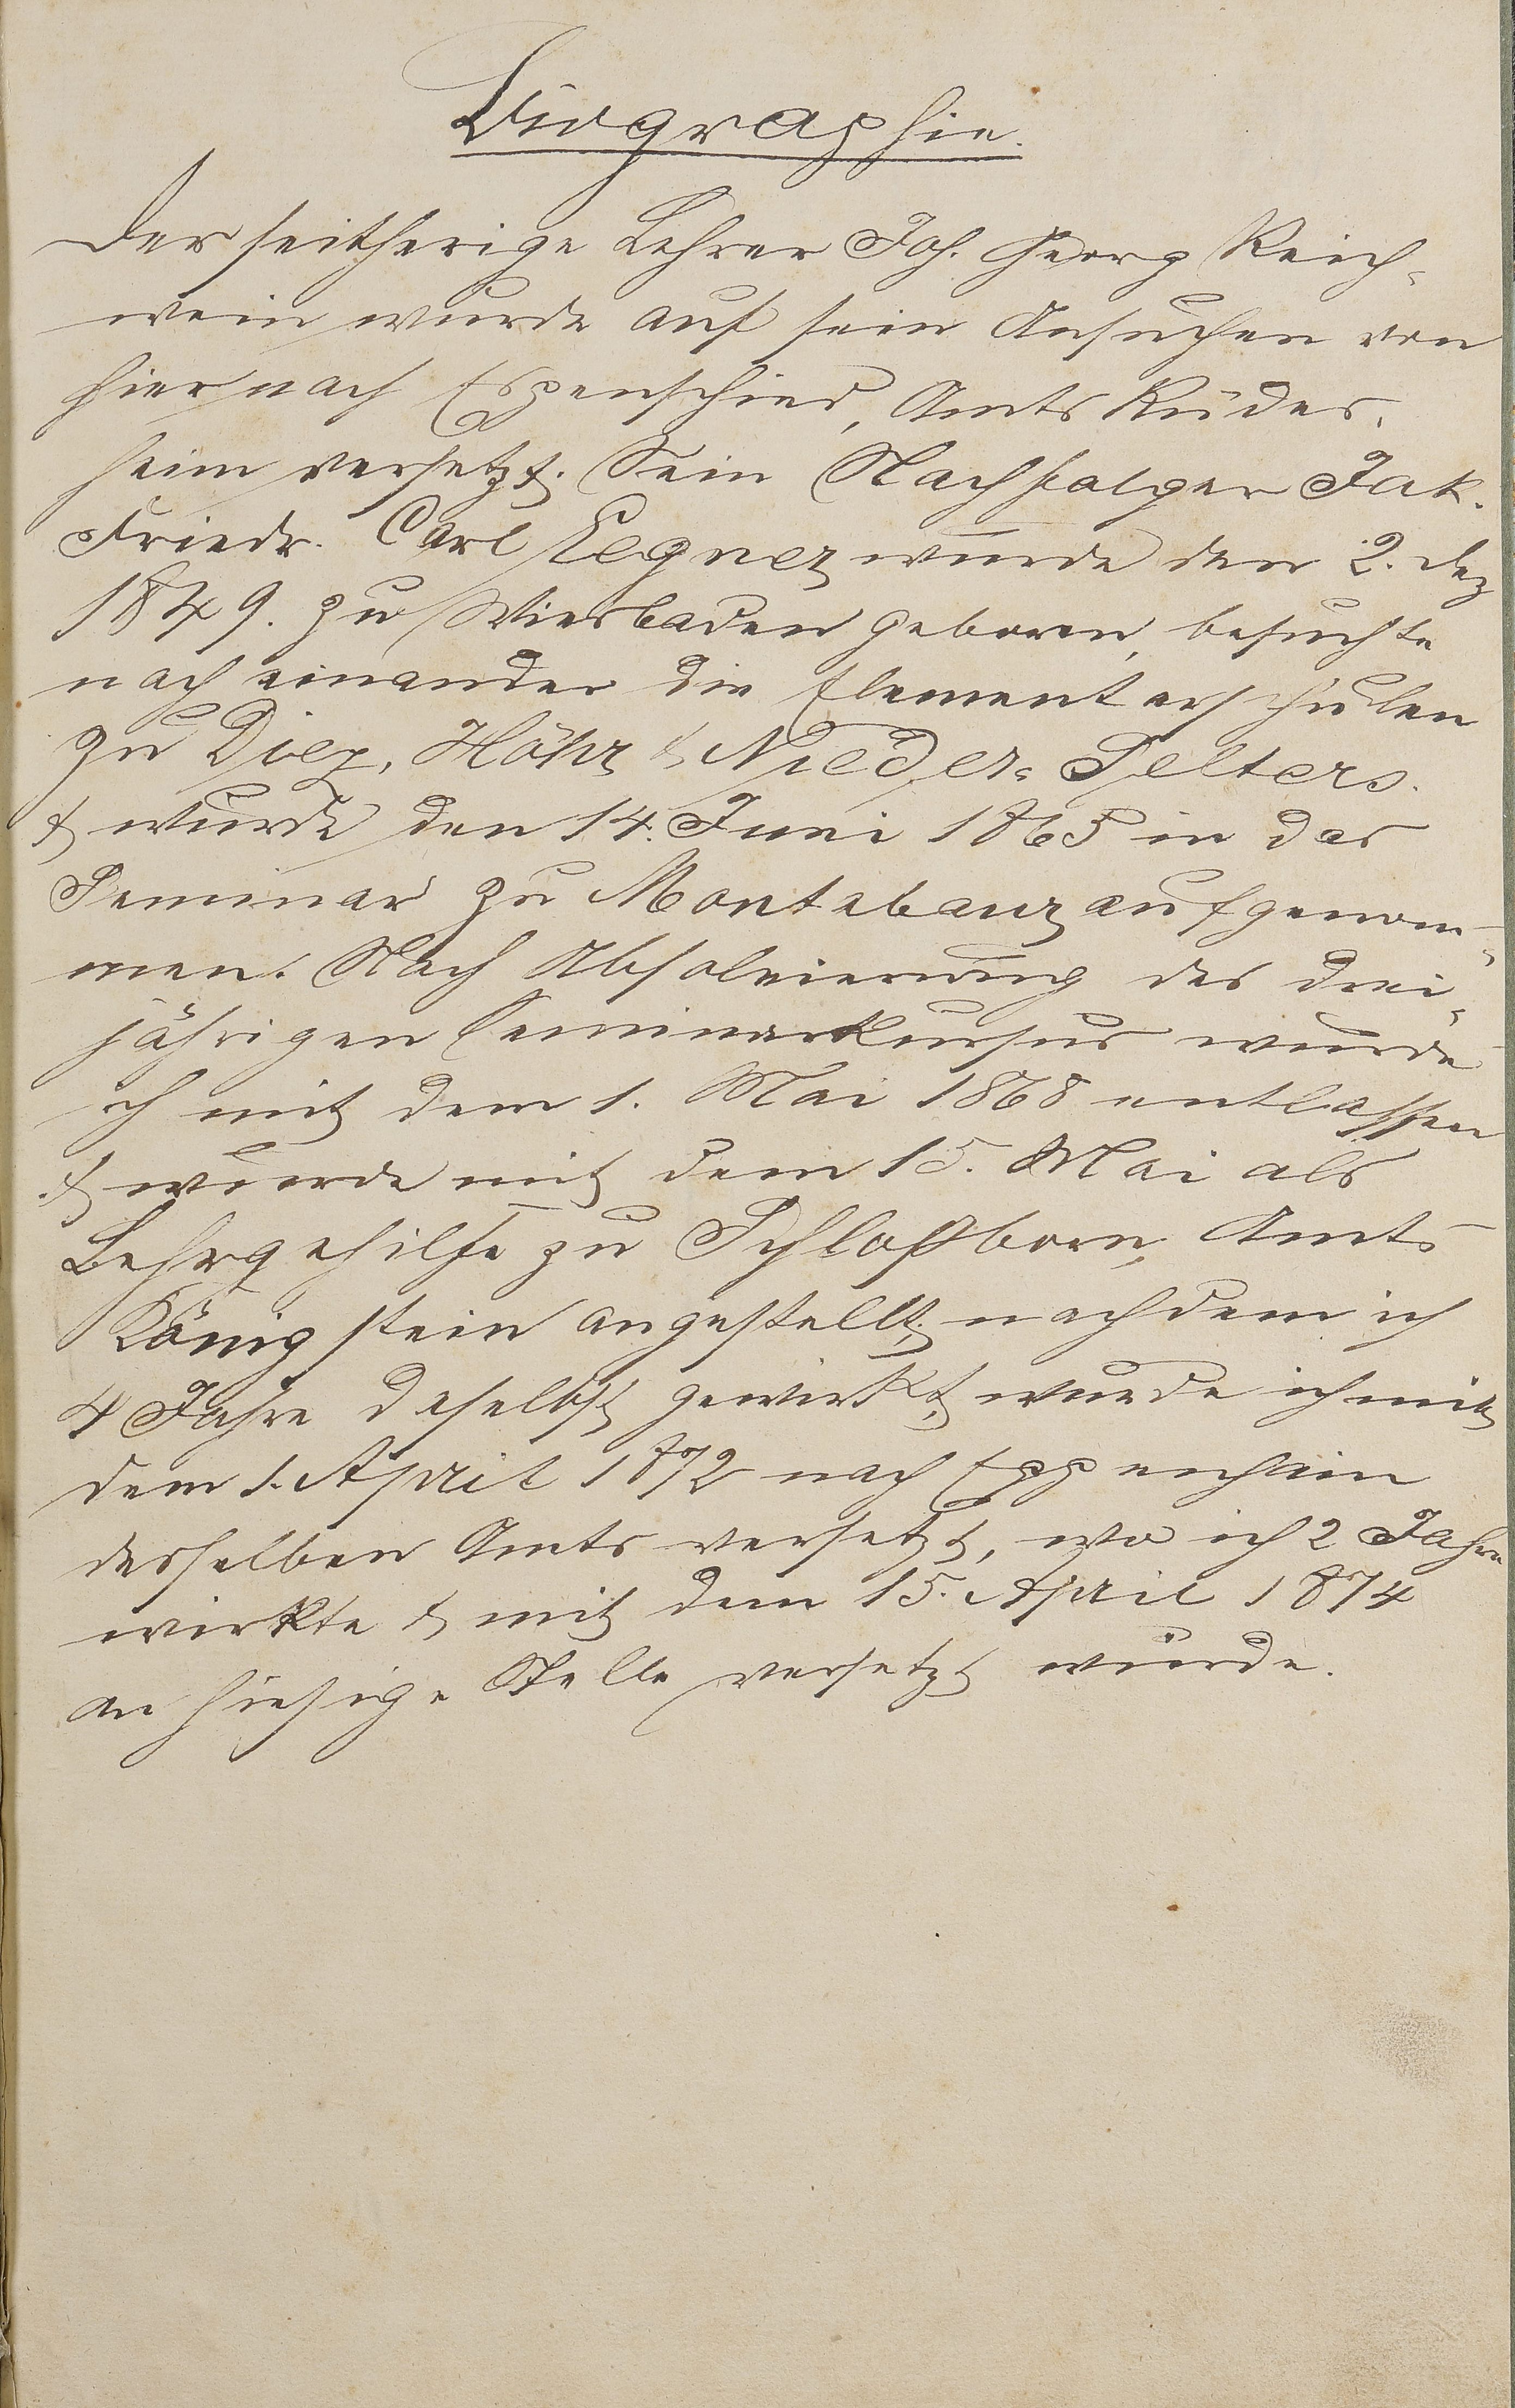 Biographie.
Der seitherige Lehrer Joh. Georg Reich-
wein wurde auf sein Ansuchen von
hier nach Espenschied, Amts Rüdes-
heim versetzt. Sein Nachfolger Jak.
Friedr. Carl Legner wurde den 2. Dez
1849. zu Wiesbaden geboren, besuchte
nach einander die Elementarschulen
zu Diez, Höhr & Nieder-Selters.
& wurde den 14. Juni 1865 in das
Seminar zu Montabaur aufgenom-
men. Nach Absolvierung des drei-
jährigen Seminarkursus wurde
ich mit dem 1. Mai 1868 entlassen
& wurde mit dem 15. Mai als
Lehrgehilfe zu Schloßborn, Amts
Königstein angestellt, nachdem ich
4 Jahre daselbst gewirkt, wurde ich mit
dem 1. April 1872 nach Eppenhain
desselben Amts versetzt, wo ich 2 Jahre
wirkte & mit dem 15. April 1874
an hiesige Stelle versetzt wurde.